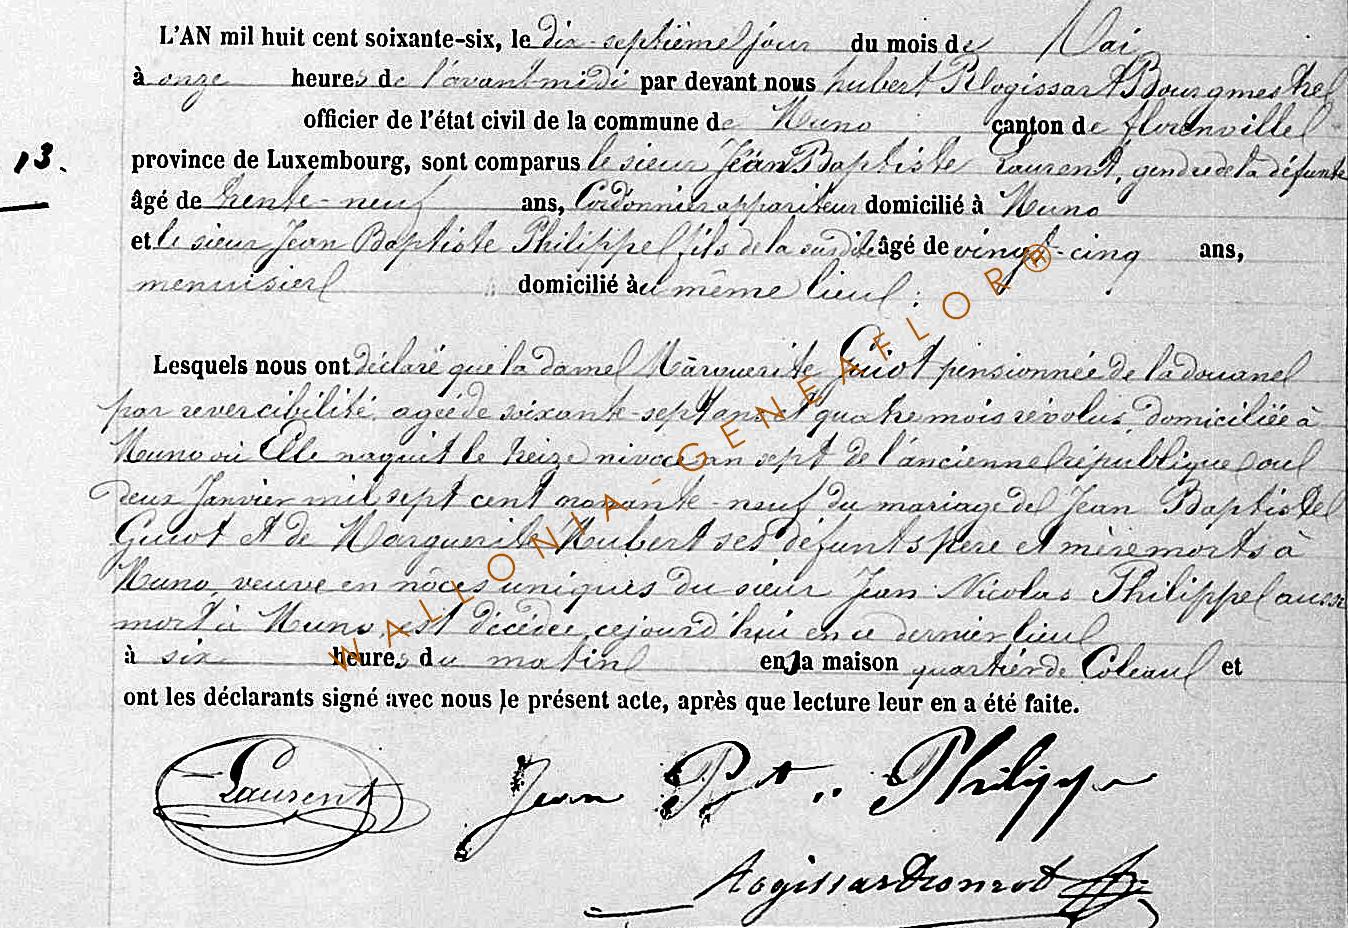 L'AN mil huit cent soixante-six, le dix-septième jour du mois de Mai
à onze heures de l'avant-midi par devant nous hubert Rogissart Bourgmestre
officier de l'état civil de la commune de Muno canton de florenville
13. province de Luxembourg, sont comparus le sieur Jean Baptiste Laurent, gendre de la défunte
âgé de trente-neuf ans, Cordonnier appariteur domicilié à Muno
et le sieur Jean Baptiste Philippe fils de la susdite âgé de vingt-cinq ans,
menuisier domicilié au même lieu ;
Lesquels nous ont déclaré que la dame Marguerite Guiot pensionnée de la douane
par revercibilité, agée de soixante-sept ans et quatre mois révolus, domiciliée à
Muno où Elle naquit le treize nivose an sept de l'ancienne république ou le
deux Janvier mil sept cent nonante-neuf du mariage de Jean Baptiste
Guiot et de Marguerite Hubert ses défunts père et mère morts à
Muno, veuve en nôces uniques du sieur Jean Nicolas Philippe aussi
mort à Muno, est décédée cejourd'hui en ce dernier lieu
à six heures du matin en la maison quartier de Coleau et
ont les déclarants signé avec nous le présent acte, après que lecture leur en a été faite.
Laurent Jean Bte Philippe
Rogissart
WALLONIA-GENEAFLOR®